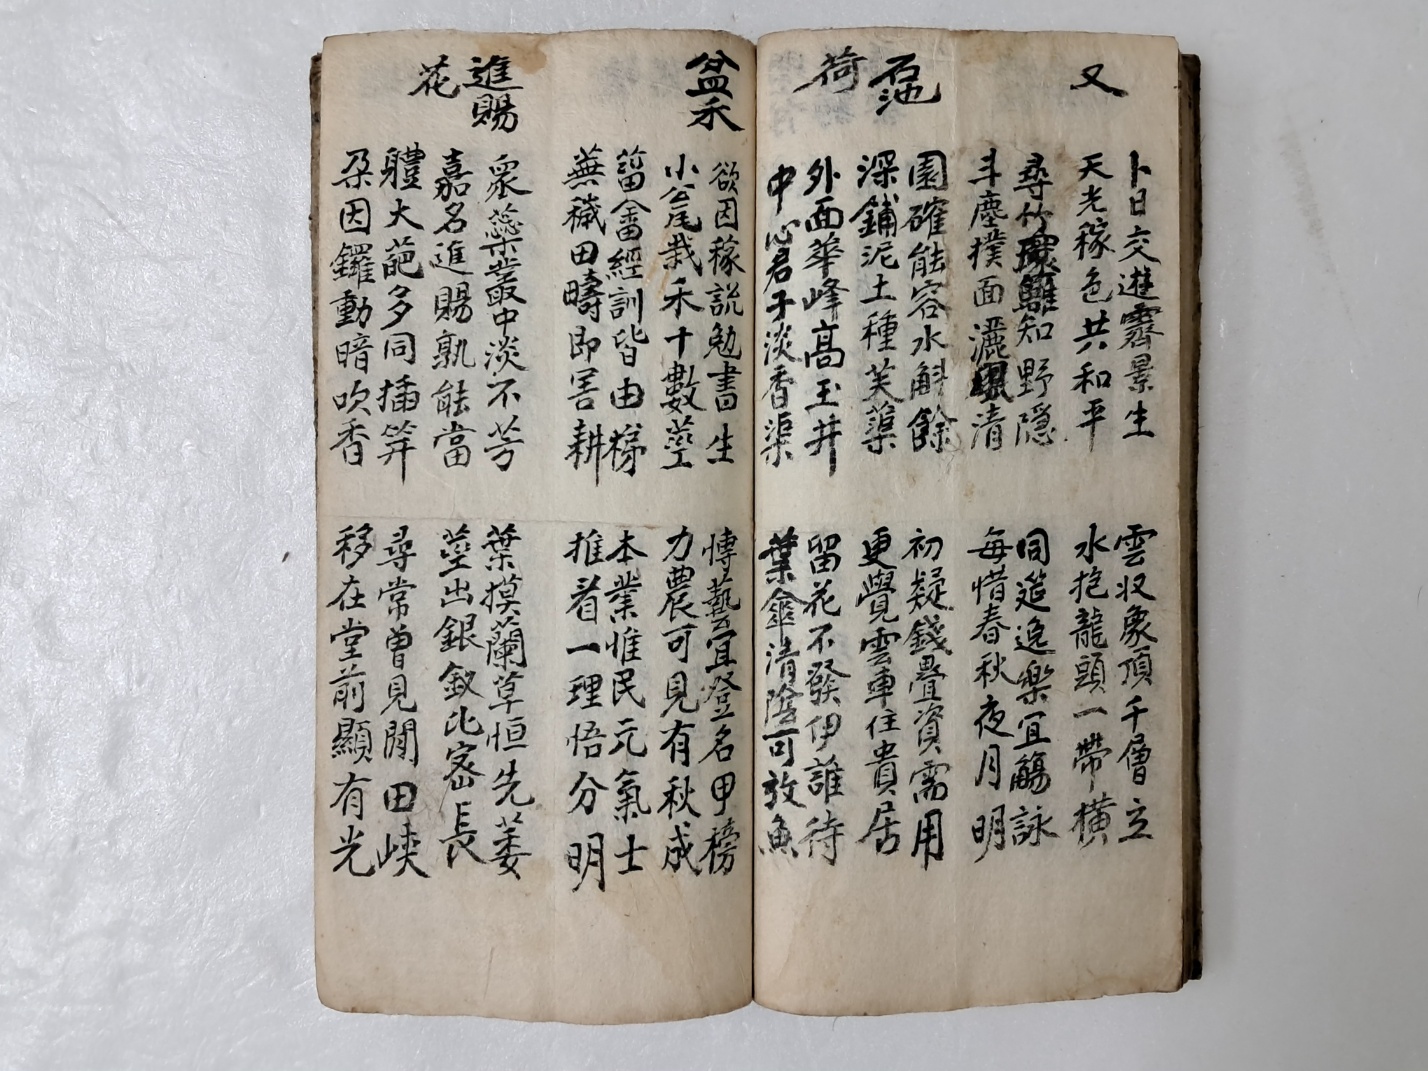 又
卜日交遊霽景生
雲収象頂千層立
天光稼色共和平
水抱龍頭一帶橫
尋竹 難知野隱
同遊逸樂宜觴詠
斗塵撲面灑 清
每惜春秋夜月明
石池荷
園確能容水斛餘
初疑錢疊資需用
深鋪泥土種芙蕖
更覺雲車住貴居
外面華峰高玉井
留花不發伊誰待
中心君子淡香渠
葉傘清陰可放魚
盆禾
欲因稼說勉書生
博藝宜登名甲榜
小盆尾栽禾十數莖
力農可見有秋成
菑畬經訓皆由梯
本業惟民元氣士
蕪穢田疇即害耕
推着一理悟分明
進賜花
眾蘂叢中淡不芳
葉摸蘭草恒先萎
嘉名進賜孰能當
莖出銀釵比密長
軆大葩多同插笄
尋常曾見閒田峽
朶因鑼動暗吹香
移在堂前顯有光